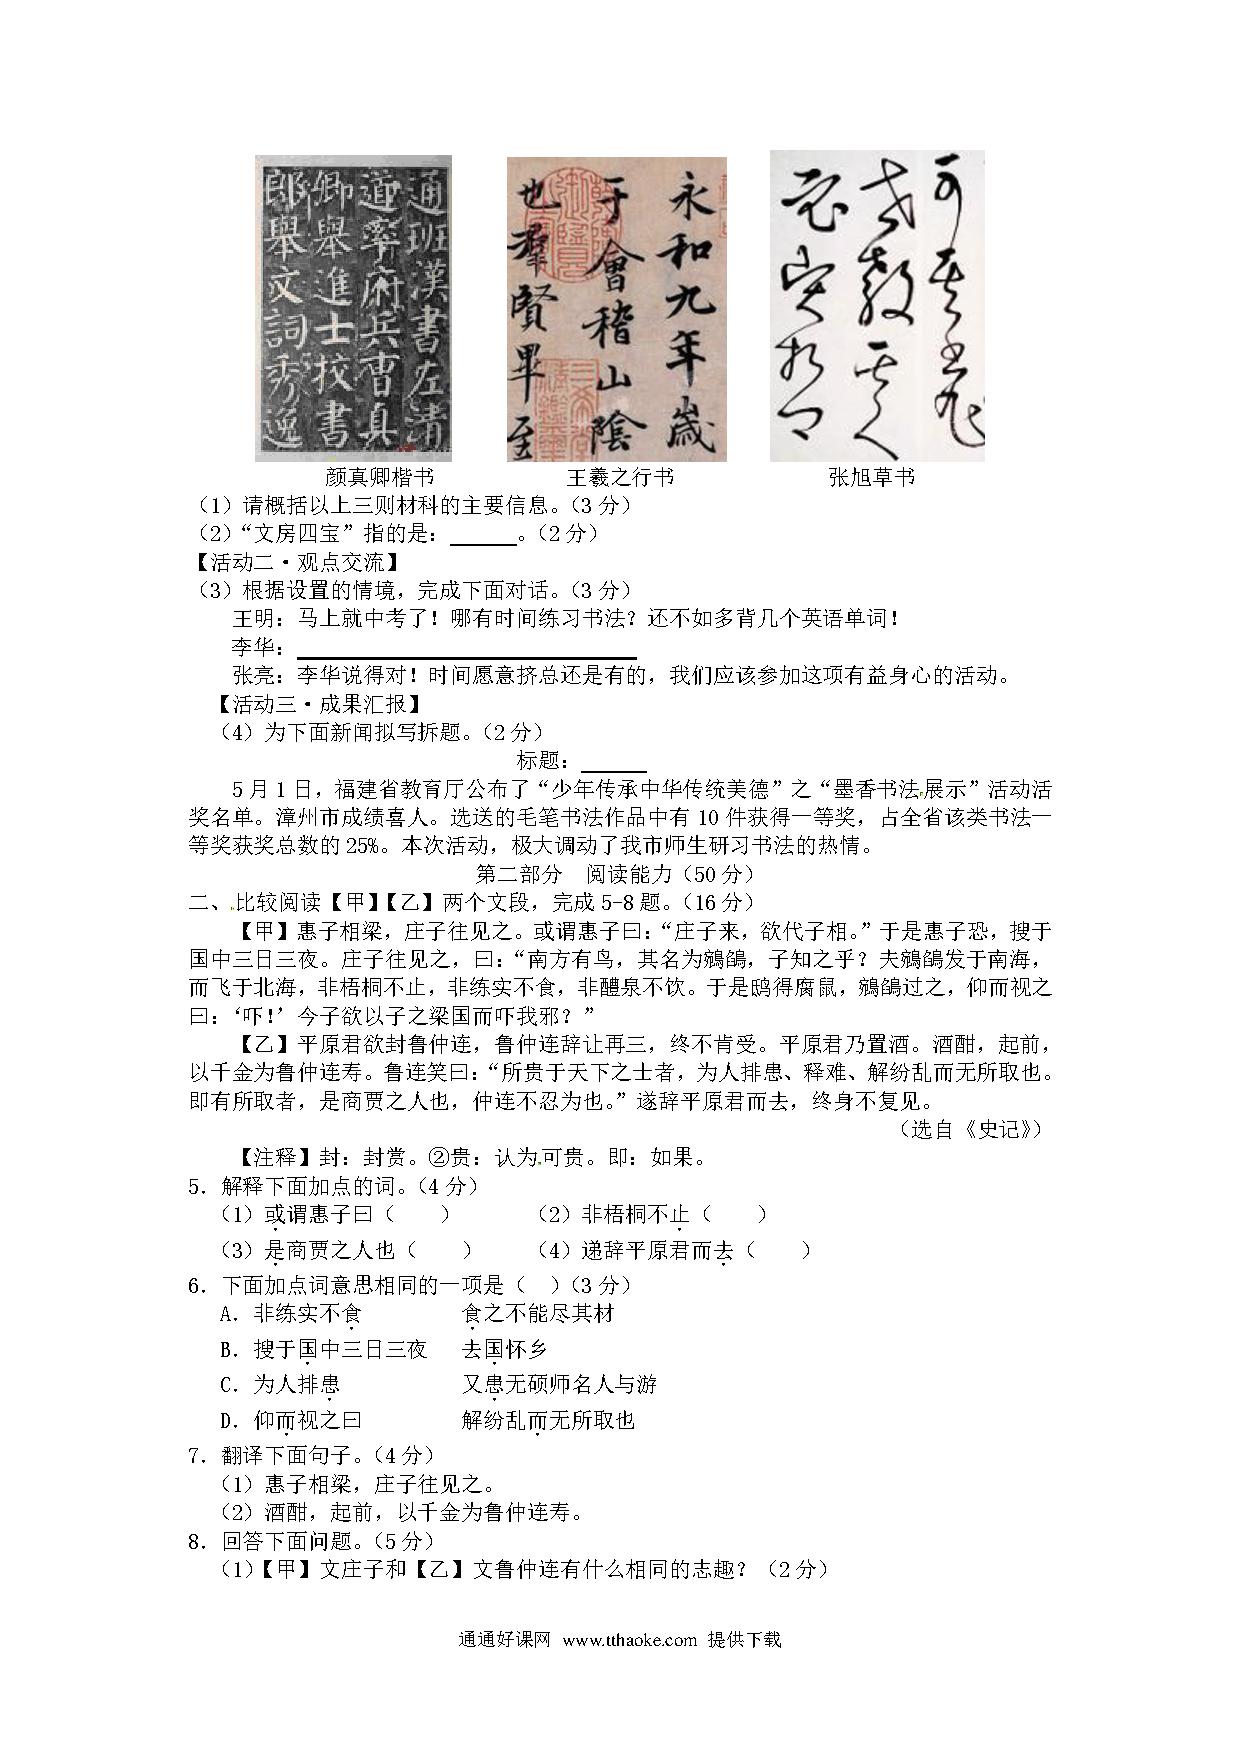 通班漢書左清
道率府兵曹真
卿舉進士校書
郎舉文詞秀逸
永和九年歲
于會稽山陰
也群賢畢至
颜真卿楷书 王羲之行书 张旭草书
（1）请概括以上三则材科的主要信息。（3 分）
（2）“文房四宝”指的是：______。（2 分）
【活动二·观点交流】
（3）根据设置的情境，完成下面对话。（3 分）
王明：马上就中考了！哪有时间练习书法？还不如多背几个英语单词！
李华：
张亮：李华说得对！时间愿意挤总还是有的，我们应该参加这项有益身心的活动。
【活动三·成果汇报】
（4）为下面新闻拟写拆题。（2 分）
标题：______
5 月 1 日，福建省教育厅公布了“少年传承中华传统美德”之“墨香书法展示”活动活
奖名单。漳州市成绩喜人。选送的毛笔书法作品中有 10 件获得一等奖，占全省该类书法一
等奖获奖总数的 25%。本次活动，极大调动了我市师生研习书法的热情。
第二部分 阅读能力（50 分）
二、比较阅读【甲】【乙】两个文段，完成 5-8 题。（16 分）
【甲】惠子相梁，庄子往见之。或谓惠子曰：“庄子来，欲代子相。”于是惠子恐，搜于
国中三日三夜。庄子往见之，曰：“南方有鸟，其名为鵷鶵，子知之乎？夫鵷鶵发于南海，
而飞于北海，非梧桐不止，非练实不食，非醴泉不饮。于是鸱得腐鼠，鵷鶵过之，仰而视之
曰：‘吓！’今子欲以子之梁国而吓我邪？”
【乙】平原君欲封鲁仲连，鲁仲连辞让再三，终不肯受。平原君乃置酒。酒酣，起前，
以千金为鲁仲连寿。鲁连笑曰：“所贵于天下之士者，为人排患、释难、解纷乱而无所取也。
即有所取者，是商贾之人也，仲连不忍为也。”遂辞平原君而去，终身不复见。
（选自《史记》）
【注释】封：封赏。②贵：认为可贵。即：如果。
5．解释下面加点的词。（4 分）
（1）或谓惠子曰（ ） （2）非梧桐不止（ ）
（3）是商贾之人也（ ） （4）递辞平原君而去（ ）
6．下面加点词意思相同的一项是（ ）（3 分）
A．非练实不食 食之不能尽其材
B．搜于国中三日三夜 去国怀乡
C．为人排患 又患无硕师名人与游
D．仰而视之曰 解纷乱而无所取也
7．翻译下面句子。（4 分）
（1）惠子相梁，庄子往见之。
（2）酒酣，起前，以千金为鲁仲连寿。
8．回答下面问题。（5 分）
（1）【甲】文庄子和【乙】文鲁仲连有什么相同的志趣？（2 分）
通通好课网 www.tthaoke.com 提供下载